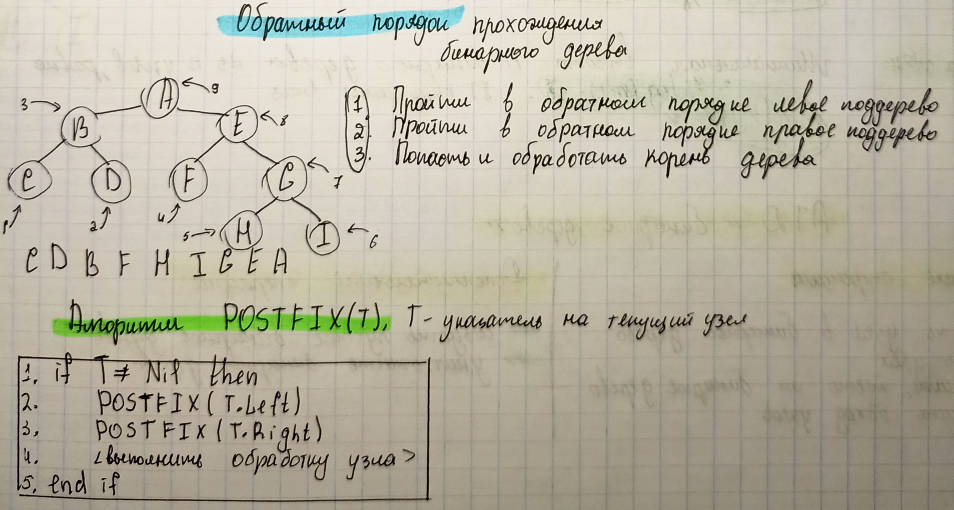 Обратный порядок прохождения
бинарного дерева
A 9
3 B E 8
C D F G 7
1 2 4 5 H I 6
C D B F H I G E A
1. Пройти в обратном порядке левое поддерево
2. Пройти в обратном порядке правое поддерево
3. Попасть и обработать корень дерева
Алгоритм POSTFIX(T), T - указатель на текущий узел
1. if T ≠ Nil then
2. POSTFIX(T.Left)
3. POSTFIX(T.Right)
4. <выполнить обработку узла>
5. end if